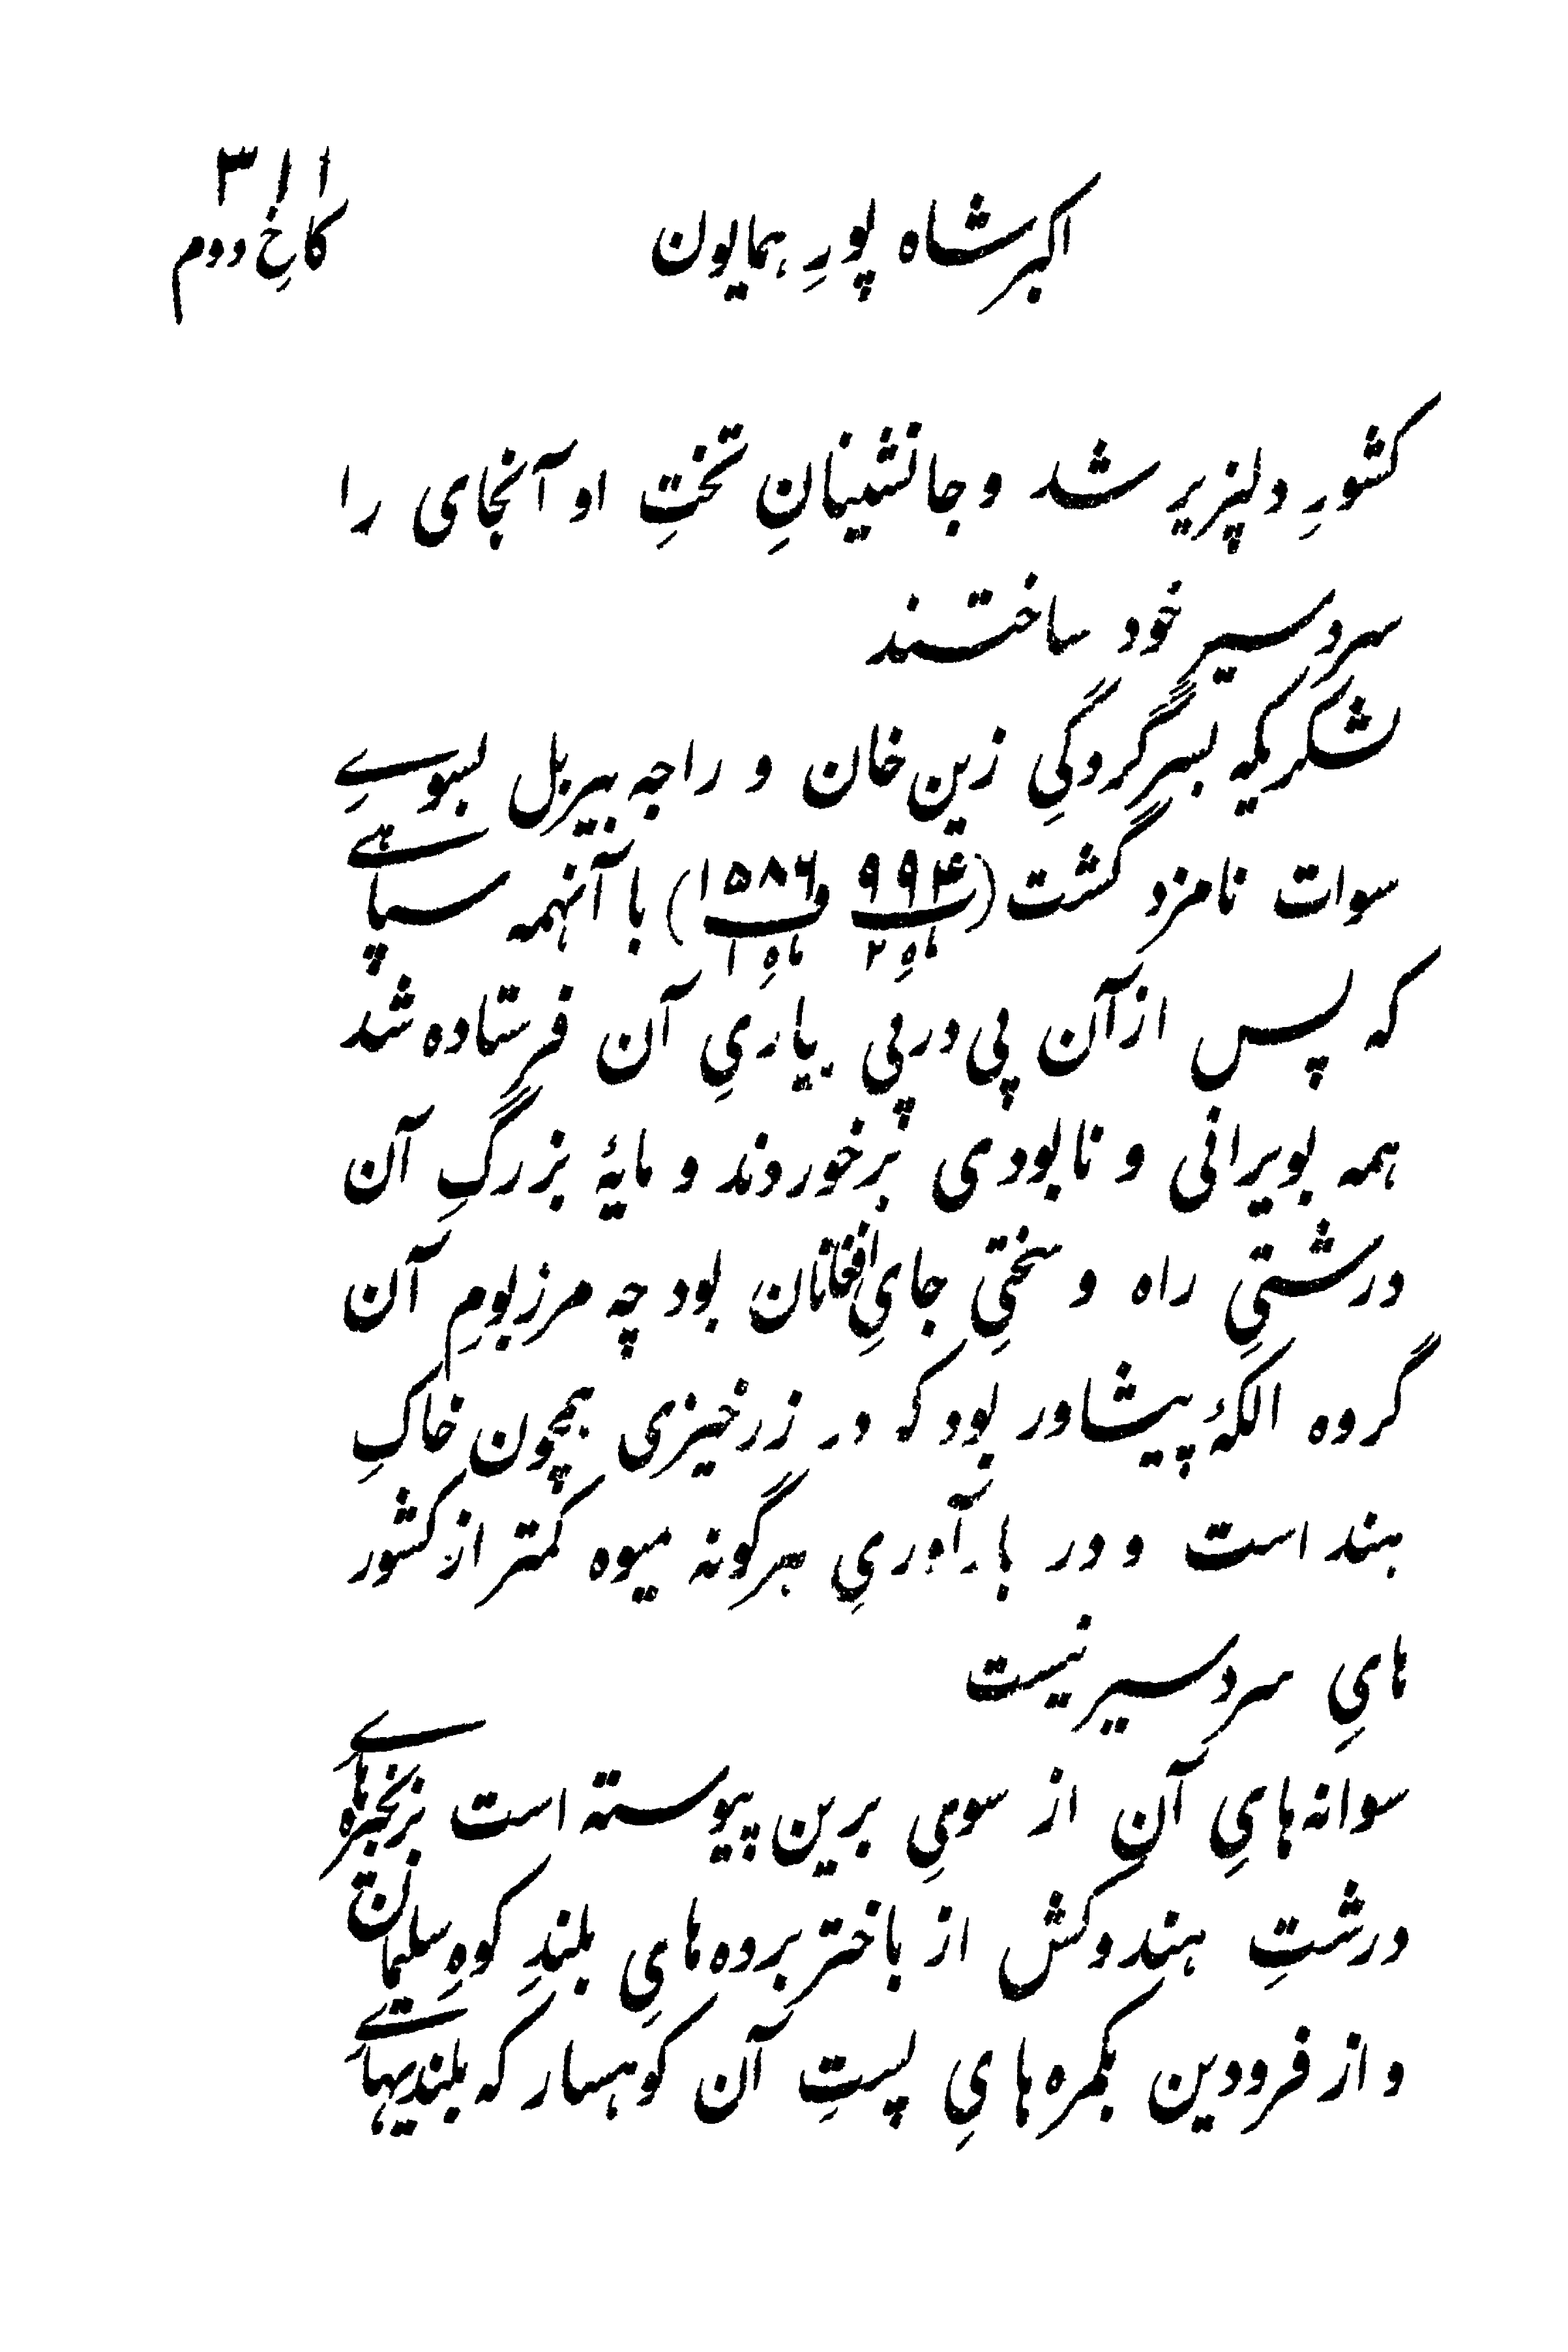 ۳۱۱
اکبرشاه پورِ همایون
کاخِ دوم
کشورِ دلپزیر شد و جانشینانِ تختِ او آنجای را
سردسیر خود ساختند
لشکریکه بسرگردگیِ زین خان و راجه بیربل بسوےِ
سوات نامزد گشت (۹۹۴ ۱۵۸۶) با آنهمه سپاهے
ماهِ ۲ ماهِ ۱
که پس از آن پی در پی بیاریِ آن فرستاده شد
همه بویرانی و نابودی برخوردند و مایهٔ بزرگِ آن
درشتیِ راه و سختیِ جایِ افغانان بود چه مرزبومِ آن
گروه الکهٔ پیشاور بود که در زرخیزی همچون خاکِ
هند است و در بارآوریِ هرگونه میوه کمتر از کشور
هایِ سردسیر نیست
سوانه‌هایِ آن از سویِ برین پیوسته است بزنجیره‌هاےِ
درشتِ هندوکش از باختر برده‌هایِ بلندِ کوهِ سلیمان
و از فرودین بکمره‌هایِ پستِ آن کوهسار که بلندیهاےِ